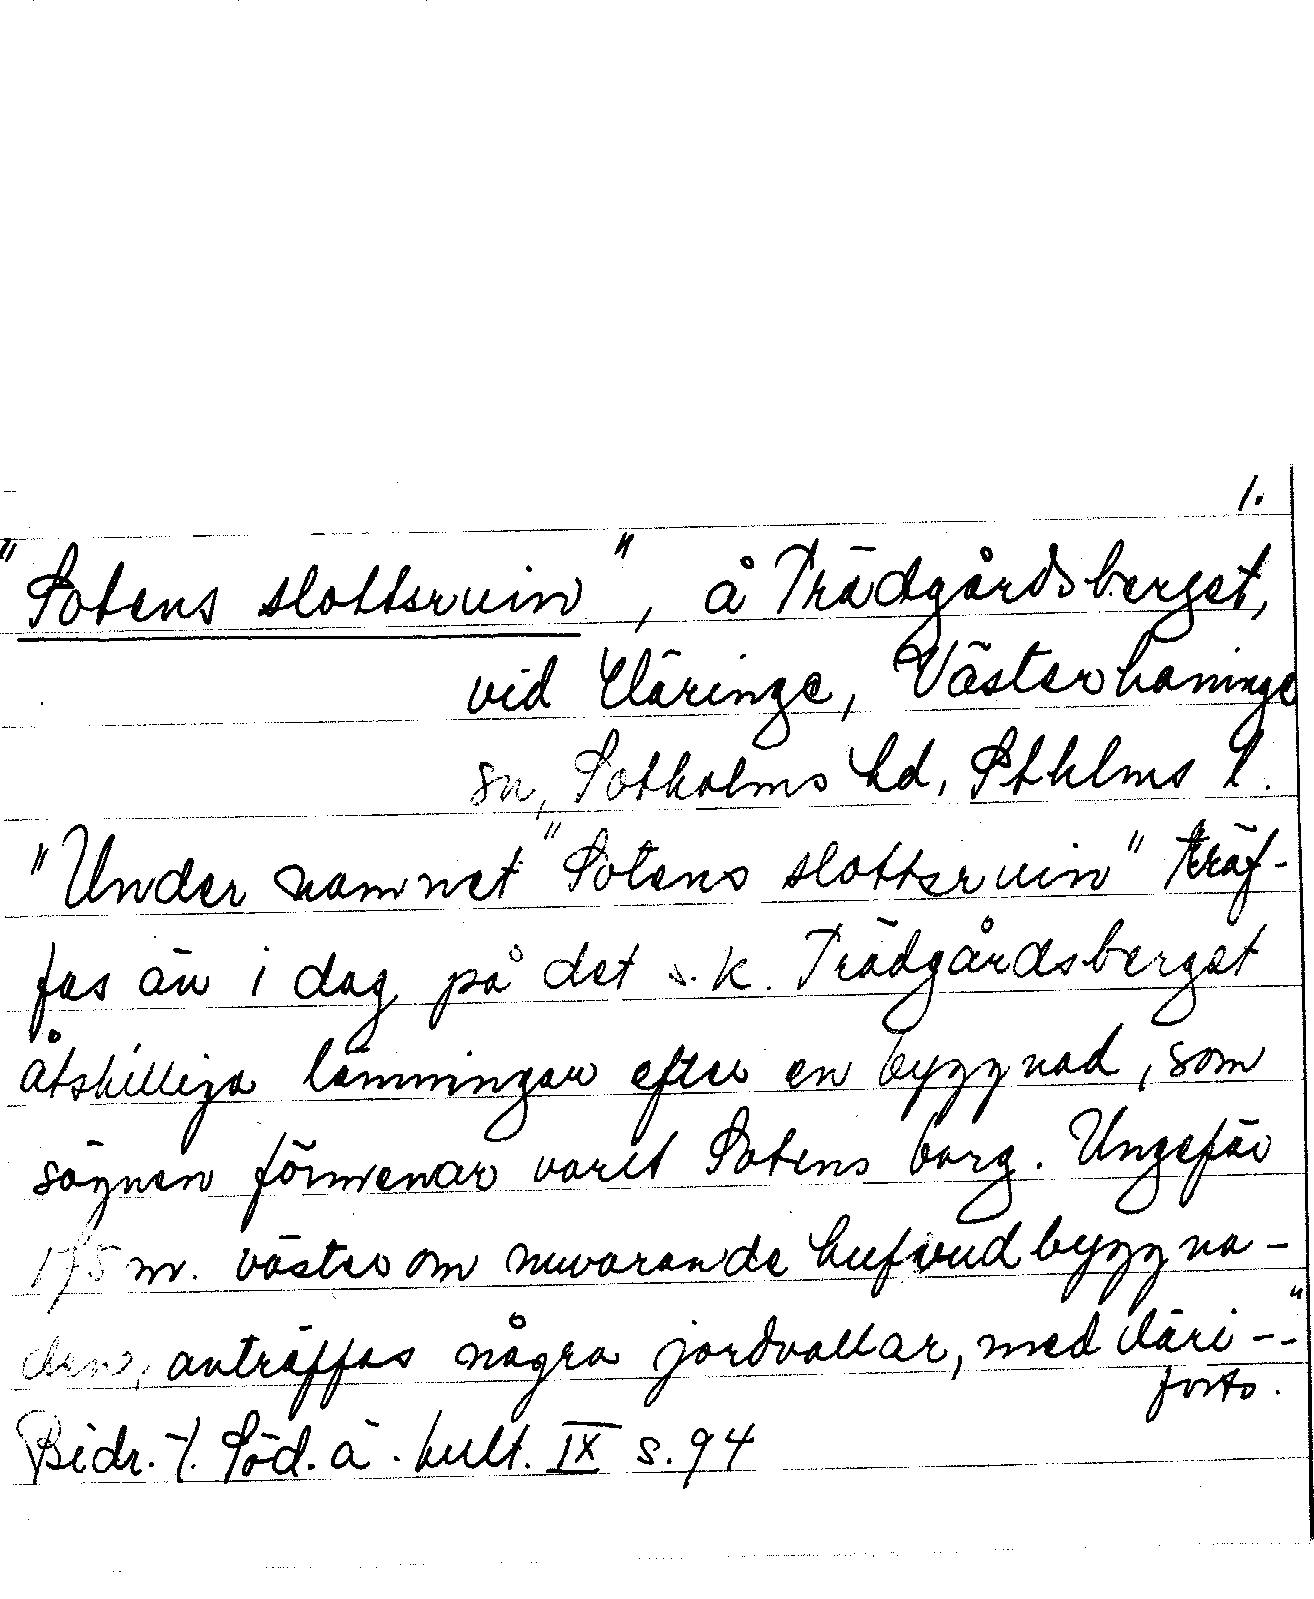 1.
"Sotens slottsruin", å Trädgårdsberget,
vid Häringe, Västerhaninge
sn, Sotholms hd, Sthlms l.
"Under namnet "Sotens slottsruin" träf-
fas än i dag på det s.k. Trädgårdsberget
åtskilliga lämningar efter en byggnad, som
sägnen förmenar varit Sotens borg. Ungefär
175 m. väster om nuvarande hufvudbyggna-
den, anträffas några jordvallar, med däri--"
forts.
Bidr. t. Söd. ä. kult. IX s. 94